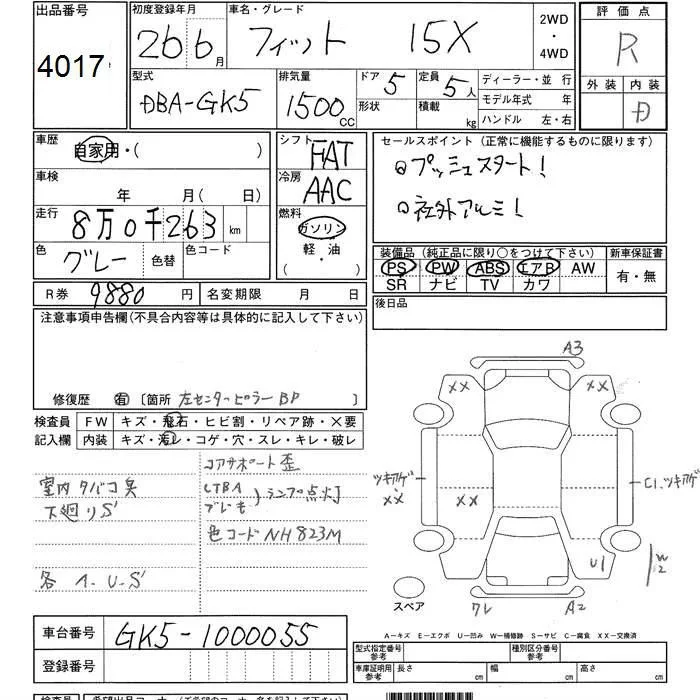 出品番号
4017
初度登録年月
26 6月
車名・グレード
フィット 15X
2WD
・
4WD
評価点
R
外装 内装
D
型式
DBA-GK5
排気量
1500 CC
ドア 5
形状
定員 5人
積載 kg
ディーラー・並行
モデル年式 年
ハンドル 左・右
車歴
自家用・( )
車検
年 月( 日)
走行
8万0千263 km
色 グレー 色替
色コード
シフト FAT
冷房 AAC
燃料
ガソリン
軽・油
( ・ )
セールスポイント(正常に機能するものに限ります)
プッシュスタート!
社外アルミ!
装備品(純正品に限り○をつけて下さい)
PS PW ABS エアB AW
SR ナビ TV カワ
新車保証書
有・無
後日品
R券 9880 円
名変期限 月 日
注意事項申告欄(不具合内容等は具体的に記入して下さい)
修復歴 有 〔箇所 左センターピラー BP 〕
検査員
記入欄
FW キズ・飛石・ヒビ割・リペア跡・X要
内装 キズ・汚レ・コゲ・穴・スレ・キレ・破レ
室内タバコ臭
下廻りS'
各 A・U・S'
コアサポート歪
LTBA
ブレーキ
ランプ点灯
色コード NH823M
A3
XX
XX
ツキアゲ
XX
XX
C1、ツキアゲ
U1
W2
ワレ
A2
スペア
A－キズ E－エクボ U－凹み W－補修跡 S－サビ C－腐食 XX－交換済
車台番号
GK5-1000055
登録番号
型式指定番号
参考
種別区分番号
参考
車庫証明用
参考
長さ cm
幅 cm
高さ cm
検査員
希望出品コーナー名(ご希望のコーナー名を記入して下さい)